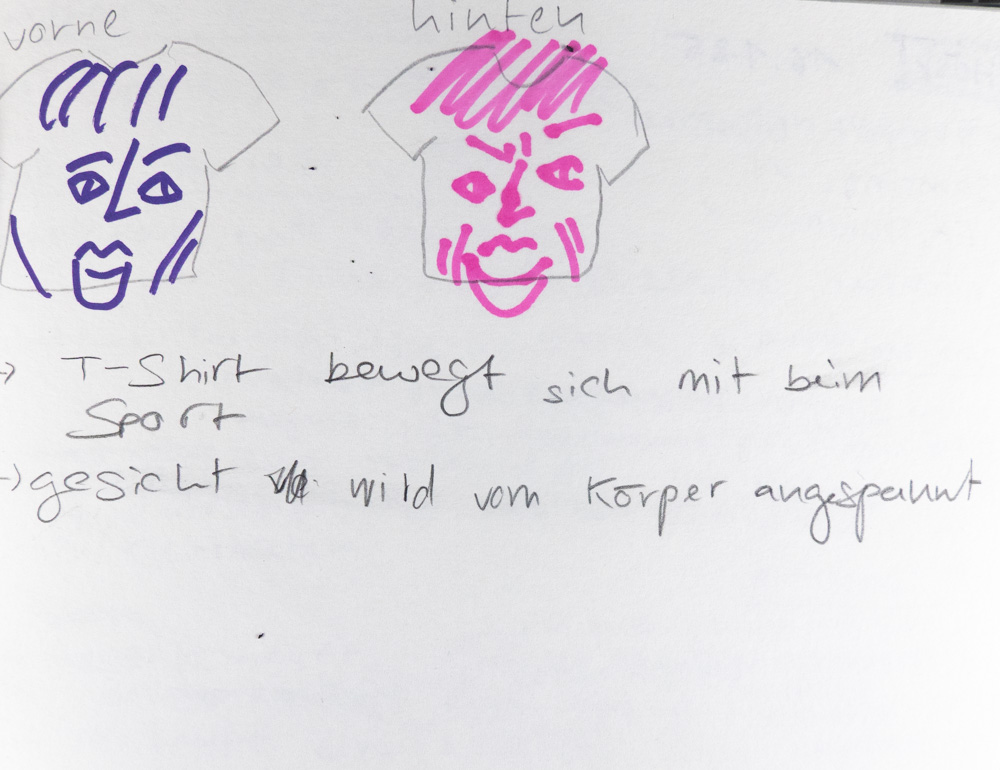 vorne
hinten
→ T-Shirt bewegt sich mit beim
Sport
→ gesicht wird vom Körper angespannt